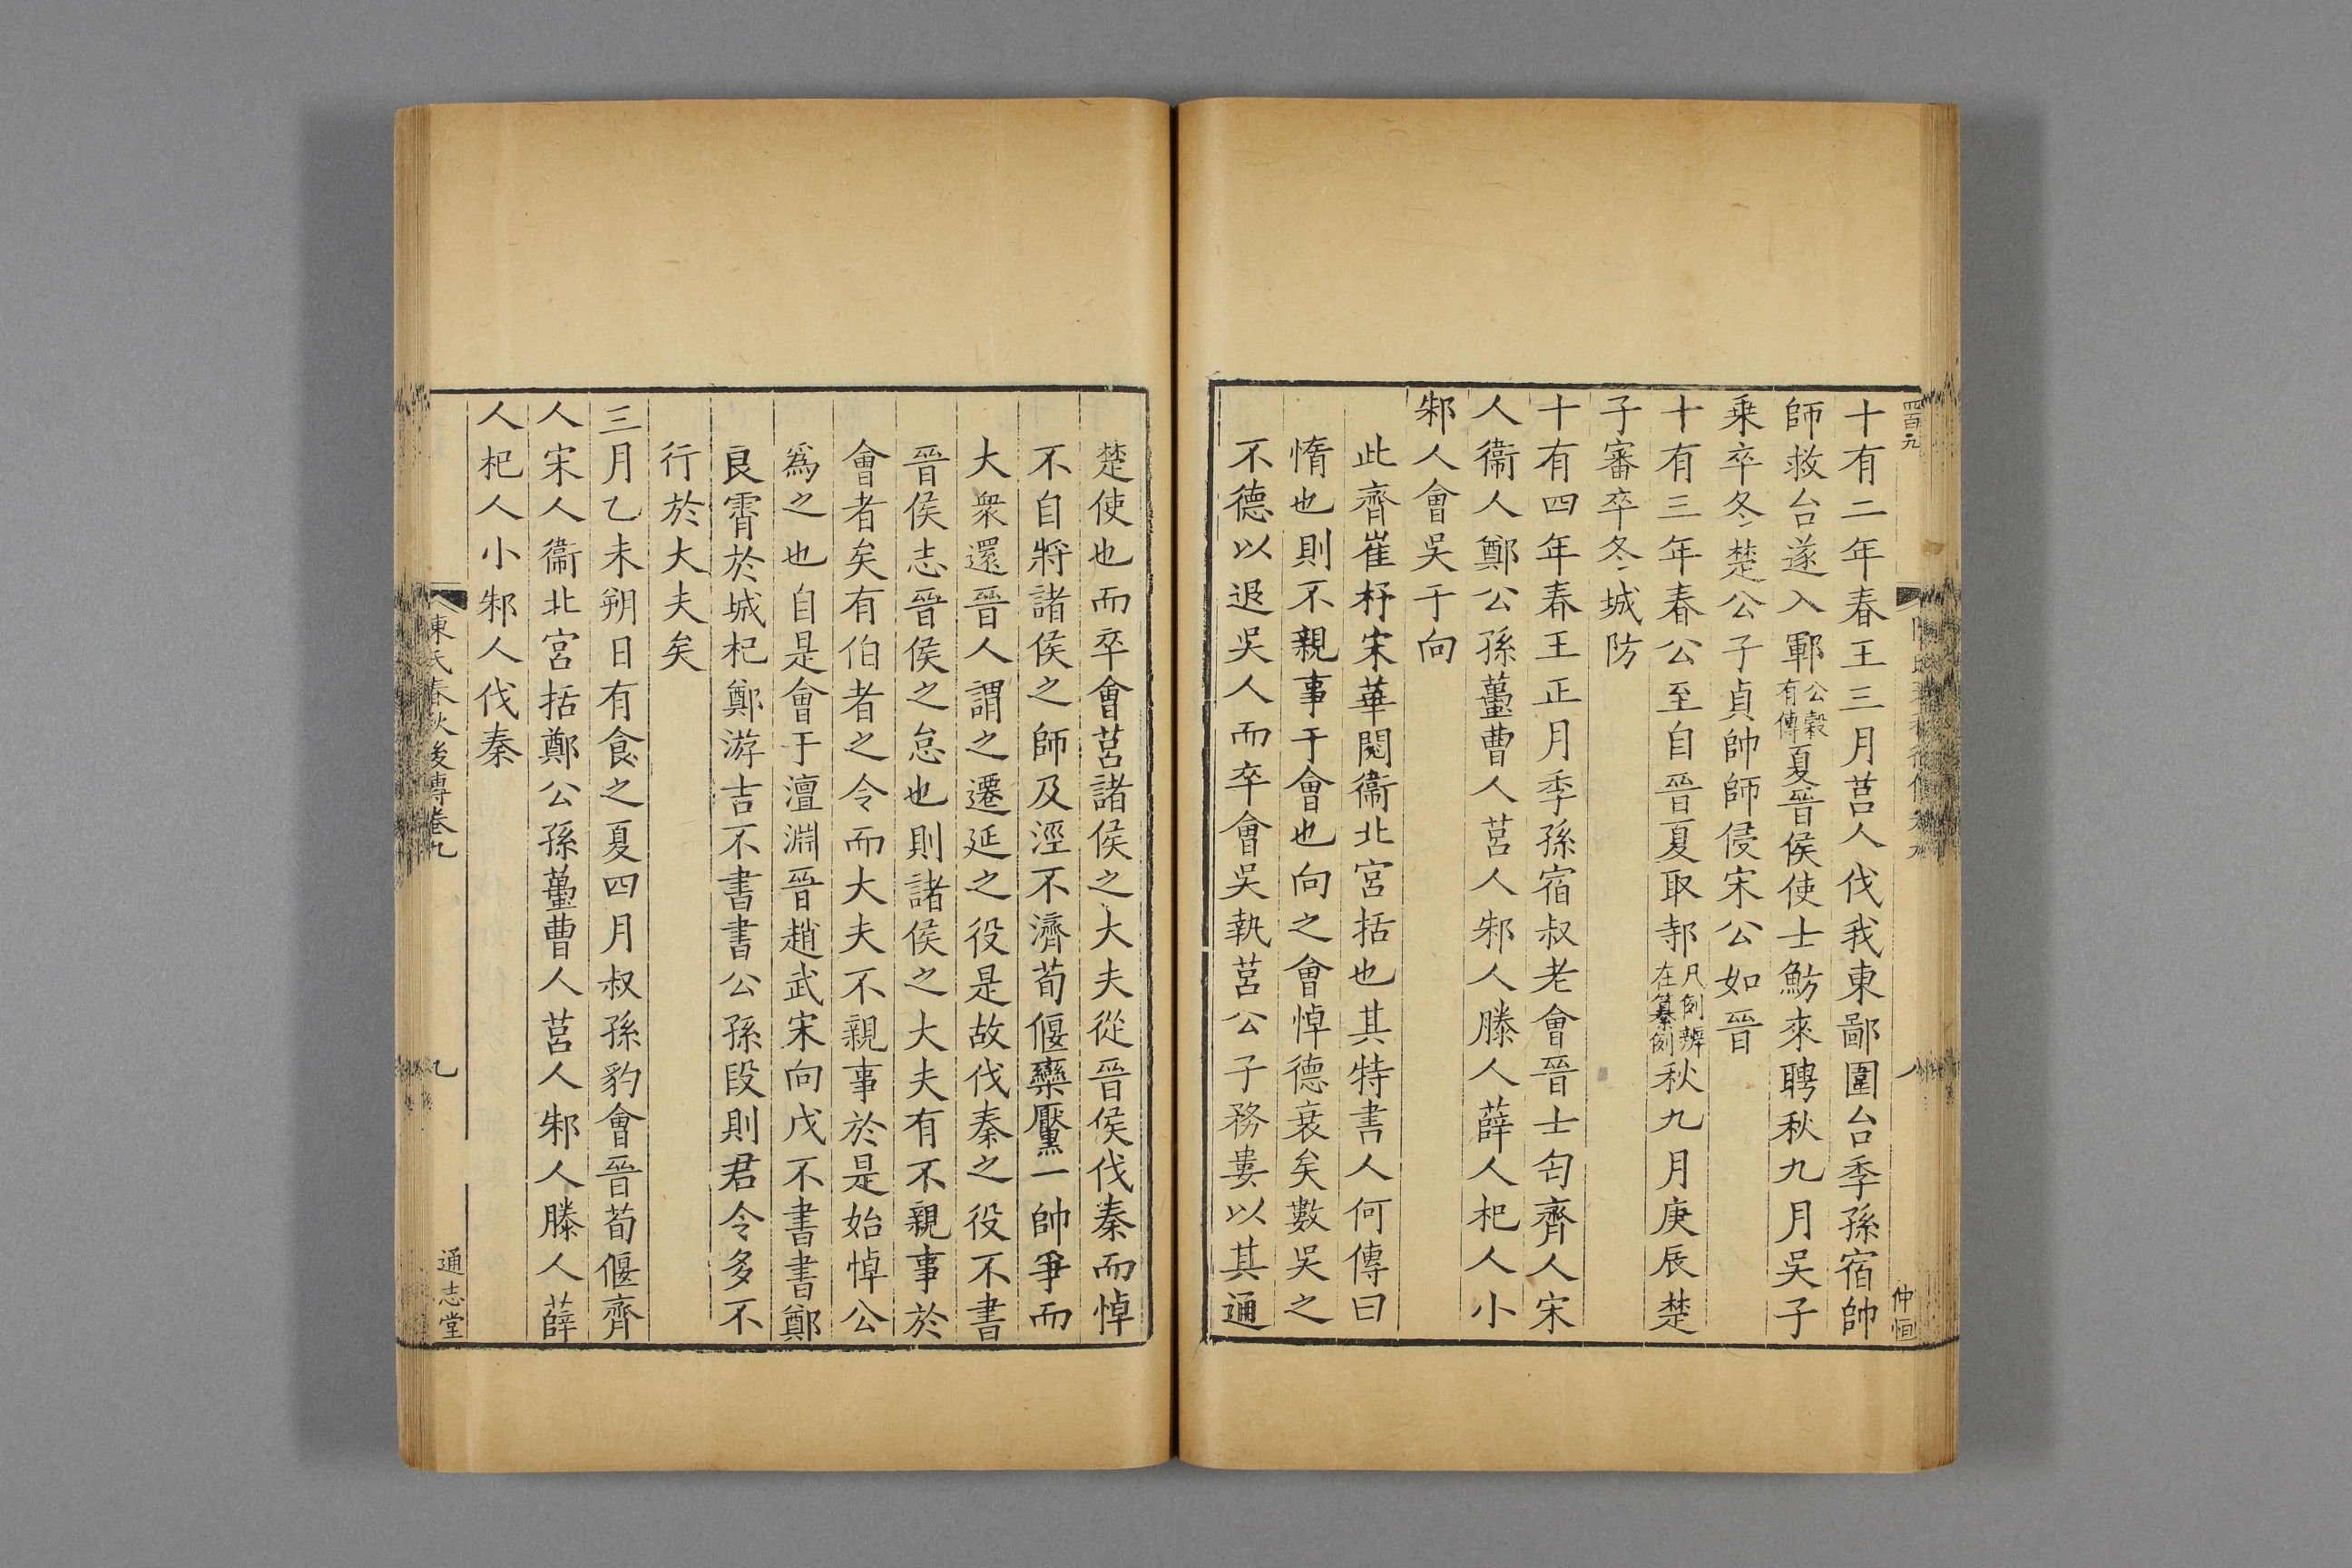 四百九
十有二年春王三月莒人伐我東鄙圍台季孫宿帥
師救台遂入鄆公穀有傳夏晉侯使士魴來聘秋九月吳子
乗卒冬楚公子貞帥師侵宋公如晉
十有三年春公至自晉夏取邿凡例辨在纂例秋九月庚辰楚
子審卒冬城防
十有四年春王正月季孫宿叔老會晉士匄齊人宋
人衞人鄭公孫蠆曹人莒人邾人滕人薛人杞人小
邾人會吳于向
此齊崔杼宋華閱衞北宮括也其特書人何傳曰
惰也則不親事于會也向之會悼德衰矣數吳之
不德以退吳人而卒會吳執莒公子務婁以其通
仲恒
楚使也而卒會莒諸侯之大夫從晉侯伐秦而悼
不自將諸侯之師及涇不濟荀偃欒黶一帥爭而
大衆還晉人謂之遷延之役是故伐秦之役不書
晉侯志晉侯之怠也則諸侯之大夫有不親事於
會者矣有伯者之令而大夫不親事於是始悼公
爲之也自是會于澶淵晉趙武宋向戌不書書鄭
良霄於城杞鄭游吉不書書公孫段則君令多不
行於大夫矣
三月乙未朔日有食之夏四月叔孫豹會晉荀偃齊
人宋人衞北宮括鄭公孫蠆曹人莒人邾人滕人薛
人杞人小邾人伐秦
陳氏春秋後傳卷九
九
通志堂